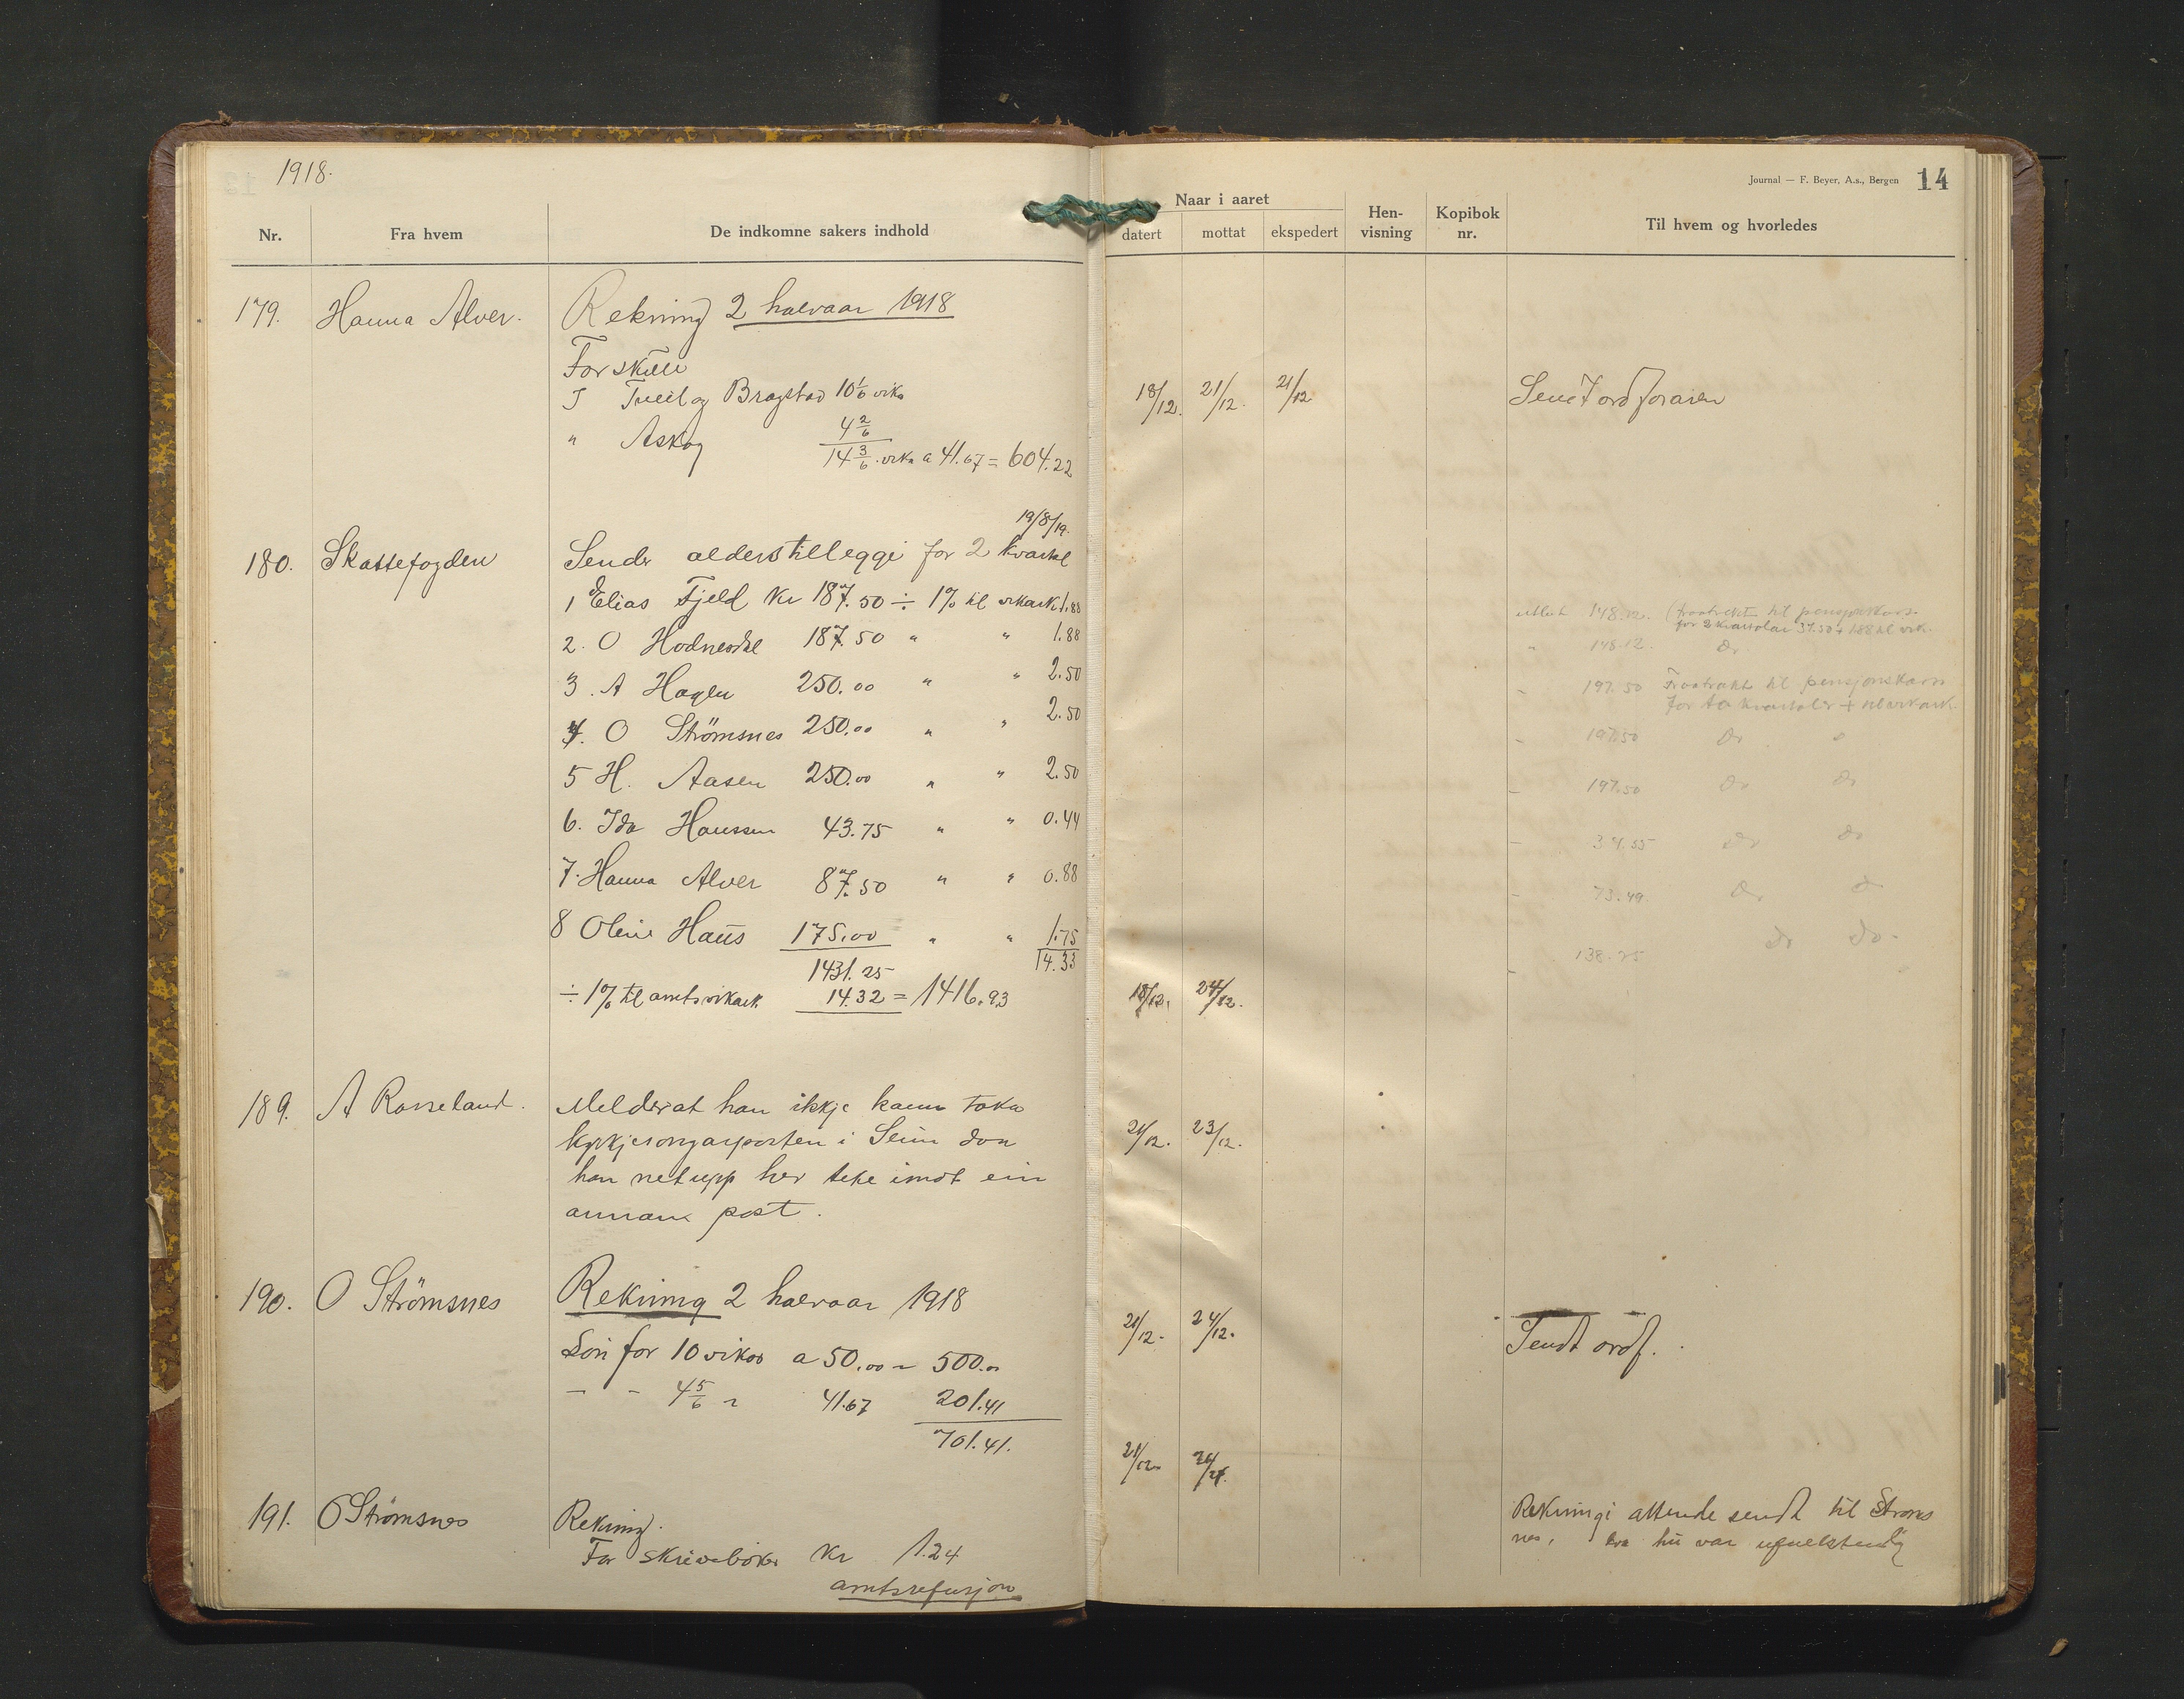 1918.
Nr.
Fra hvem
De indkomne sakers indhold
179. Hanna Alver.
Rekning 2 halvaar 1918
For skule
I Tveit og Bragstad 10 1/6 vika
" Askog 4 2/6
14 3/6 vika a 41.67 = 604.22
19/8/19.
180. Skattefogden
Sender alderstilleggi for 2 kvartal
1 Elias Fjeld kr 187.50 ÷ 1% til vikark. 1.88
2. O Hodneskel 187.50 " " 1.88
3. A Hagen 250.00 " " 2.50
4. O Strömsnes 250.00 " " 2.50
5 H. Aasen 250.00 " " 2.50
6. Ida Hanssen 43.75 " " 0.44
7. Hanna Alver 87.50 " " 0.88
8 Oline Haus 175.00 " " 1.75
1431.25 14.33
÷ 1% til amtsvikark. 14.32 = 1416.93
189. A Rosseland.
Melder at han ikkje kann taka
kyrkjesongarposten i Seim daa
han netupp hev teke imot ein
annan post.
190. O Strömsnes
Rekning 2 halvaar 1918
Lön for 10 vikor a 50.00 = 500.00
- - 4 5/6 " 41.67 201.41
701.41.
191. O Strömsnes
Rekning.
For skrivebøker kr 1.24
amtsrefusjon
Journal — F. Beyer, A.s., Bergen 14
Naar i aaret
datert
mottat
ekspedert
Hen-
visning
Kopibok
nr.
Til hvem og hvorledes
18/12. 21/12. 21/12 Sendt ordforaren
utbet 148.12. (fraatrekt til pensjonskass.
for 2 kvartalar 37.50 + 1.88 til vik.
" 148.12. Do
- 197.50 Fraatrekt til pensjonskass
for to kvartaler + til vikark.
- 197.50 Do
- 197.50 Do Do
- 34.55 Do Do
- 73.49. Do Do
- 138.25 Do Do
18/12. 24/12.
21/12. 23/12.
21/12. 24/12.
Sendt ordf.
21/12
Rekningi attende sendt til Stroms
nes, hu var ufuelstendig